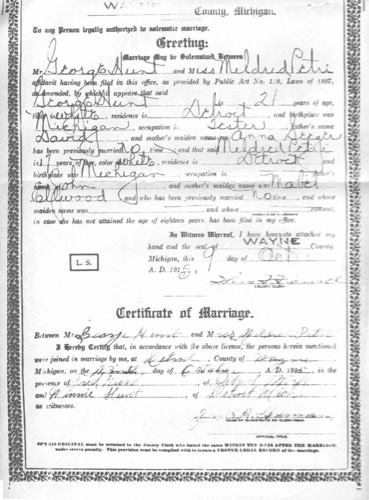 WAYNE County, Michigan.
To any Person legally authorized to solemnize marriage.
Greeting:
Marriage May be Solemnized Between
Mr. George Hunt and Miss Mildred Petri
affidavit having been filed in this office, as provided by Public Act No. 128, Laws of 1887,
as amended, by which it appears that said
George Hunt is 21 years of age,
color is white, residence is Detroit and birthplace was
Michigan, occupation is father's name
David and mother's maiden name
has been previously married no time and that said Mildred Petri
is 17 years of age, color is white, residence is Detroit and
birthplace was Michigan occupation is father's
name John and mother's maiden name was Mabel
and who has been previously married no time and whose
maiden name was and whose consent,
in case she has not attained the age of eighteen years, has been filed in my office.
In Witness Whereof, I have hereunto attached my
hand and the seal of WAYNE County,
Michigan, this 9 day of Oct.
L. S.
A. D. 1915
COUNTY CLERK
Certificate of Marriage.
Between Mr. George Hunt and M
I Hereby Certify that, in accordance with the above license, the persons herein mentioned
were joined in marriage by me, at Detroit County of Wayne
Michigan, on the day of A. D. 1915 in the
presence of of
and Winnie Hunt of Detroit Mich
as witnesses.
OFFICIAL TITLE.
ORIGINAL must be returned to the County Clerk who issued the same WITHIN TEN DAYS AFTER THE MARRIAGE,
under severe penalty. This provision must be complied with to insure a PROPER LEGAL RECORD of the marriage.